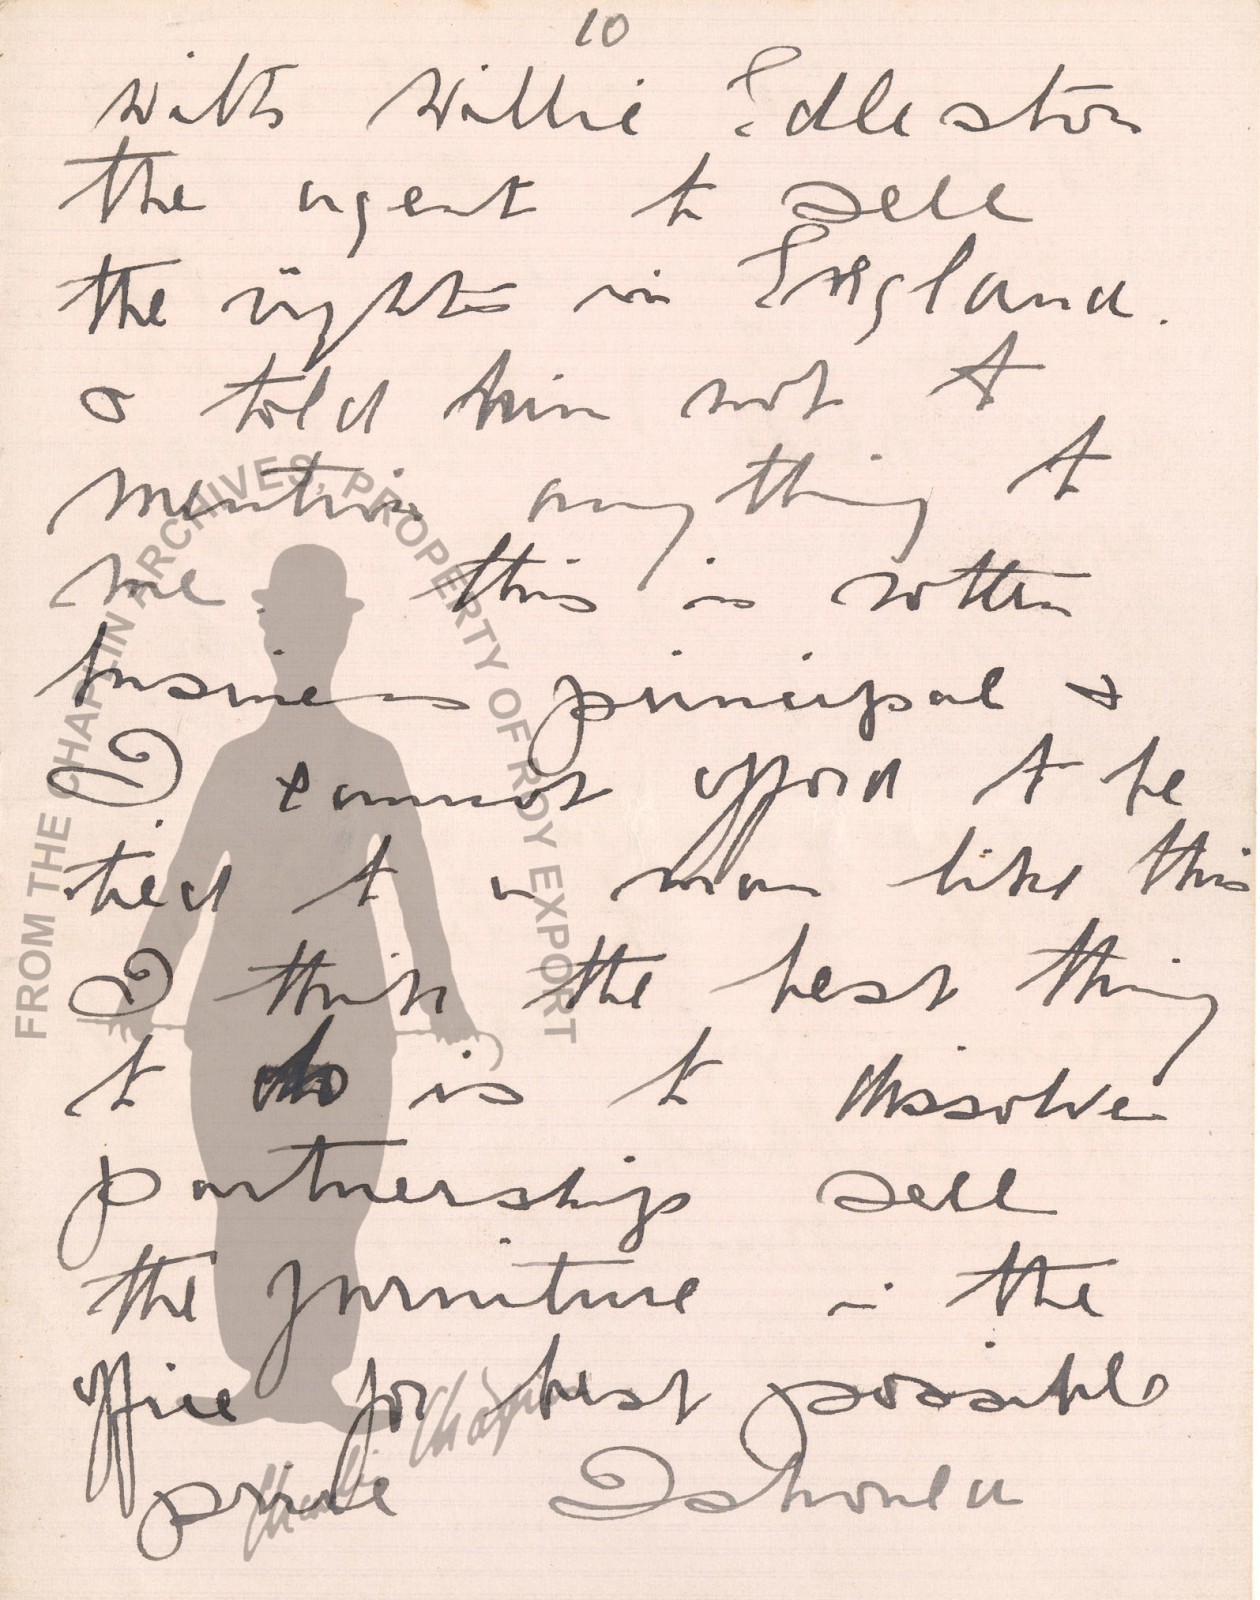 10
with Willie Edleston
the agent to sell
the rights in England.
& told him not to
mention anything to
me. this is rotten
business principal &
I cannot afford to be
tied to a man like this
I think the best thing
to do is to dissolve
partnership sell
the furniture in the
office for best possible
price I should
FROM THE CHAPLIN ARCHIVES, PROPERTY OF ROY EXPORT
Charlie Chaplin